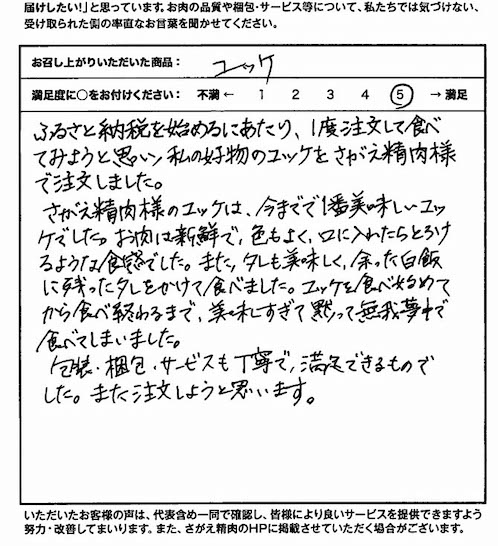 届けしたい!」と思っています。お肉の品質や梱包・サービス等について、私たちでは気づけない、
受け取られた側の率直なお言葉を聞かせてください。
お召し上がりいただいた商品： ユッケ
満足度に○をお付けください： 不満 ← 1 2 3 4 5 → 満足
ふるさと納税を始めるにあたり、1度注文して食べ
てみようと思い、私の好物のユッケをさがえ精肉様
で注文しました。
さがえ精肉様のユッケは、今までで1番美味しいユッ
ケでした。お肉は新鮮で、色もよく、口に入れたらとろけ
るような食感でした。また、タレも美味しく、余った白飯
に残ったタレをかけて食べました。ユッケを食べ始めて
から食べ終わるまで、美味しすぎて黙って無我夢中で
食べてしまいました。
包装・梱包・サービスも丁寧で、満足できるもので
した。また注文しようと思います。
いただいたお客様の声は、代表含め一同で確認し、皆様により良いサービスを提供できますよう
努力・改善してまいります。また、さがえ精肉のHPに掲載させていただく場合がございます。